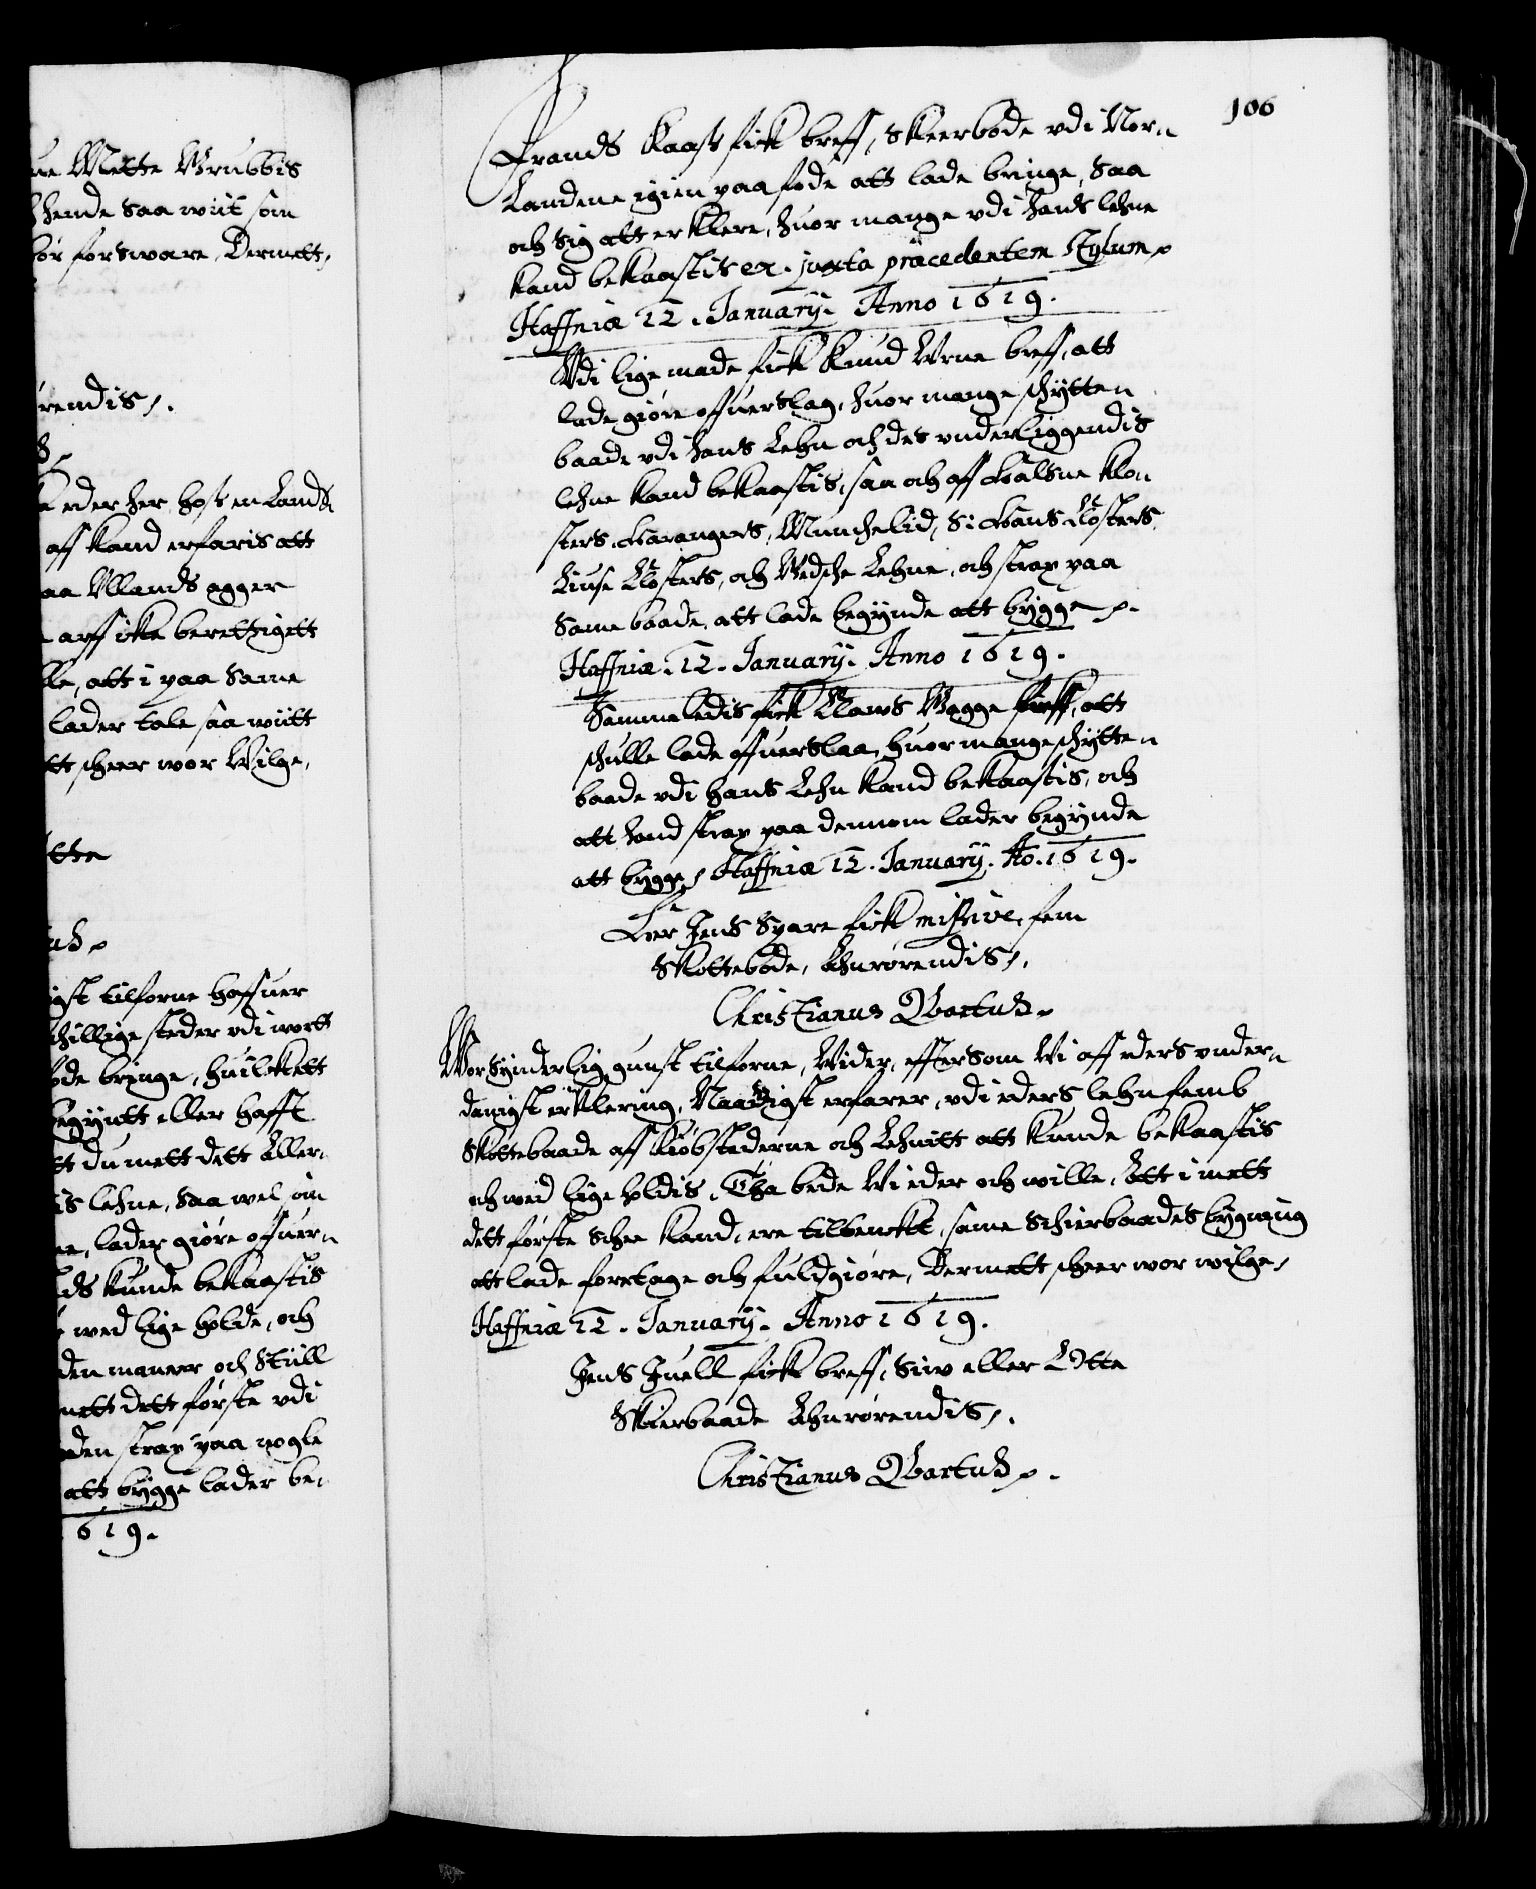 ue Mette Wrubbis
hende saa wiit som
bør forsware, Dermett,
rendis,.
eder her hoß en Lands
aff kand erfaris att
aa Ullands agger
arff icke berettigett
lle, att i paa same
lader tale saa wiitt
tt scheer wor Wilge,
tte
us
igst tilforne haffuer
schillige steder vdi wortt
ode bringe, huilckett
begyntt eller hafft
tt du mett dett Aller-
is lehne, saa wel i
ne, lader giøre offuer-
ds kunde bekaastis
wed lige holde, och
den maneer och Skill
mett dett første vdi
den strax paa nogle
att bygge lader be-
1619.
106
Frands Kaaß fick breff, Skeerbode vdi Nor-
Landene igien paa fode att lade bringe, Saa
och sig att erklere, huor mange vdi hans lehne
kand bekaastis ec. juxta præcedentem Stylum.
Haffniæ 12. January. Anno 1619.
Vdi lige made fick Knud Vrne breff, att
lade giøre offuerslag, huor mange schytten
baade vdi hans Lehn och des vnderliggendis
lehne kand bekaastis, saa och aff Halsne Klo-
sters, Hardangers, Munchelid, S: Hans Closters,
Liuse Closters, och Wedsche Lehne, och strax paa
same baade, att lade begynde att bygge.
Haffniæ. 12. January. Anno 1619.
Sammeledis fick Claws Magge breff, att
schulle lade offuerslaa, huor mange schytten
baade vdi hans Lehn kand bekaastis, och
att hand strax paa dennom lader begynde
att bygge, Haffniæ 12. January. Ao. 1619.
Her Jens Spare fick missive, fem
Skottebode, Ahnrørendis,.
Christianus Qvartus.
Wor synderlig gunst tilforne, Wider, efftersom Wi aff eders vnder-
danigst erklering, Naadigst erfarer, vdi eders lehn femb
Skottebaade aff Kiøbstederne och Lehnitt att kunde bekaastis
och wid lige holdis, Tha bede Wi eder och wille, att i mett
dett første schee kand, ere tilbenckt, same Schierbaades bygning
att lade foretage och fuldgiøre, Dermett scheer wor wilge,
Haffniæ 12. January. Anno 1619.
Jens Juell fick breff, siw eller Otte
Skierbaade Ahnrørendis,.
Christianus Qvartus.